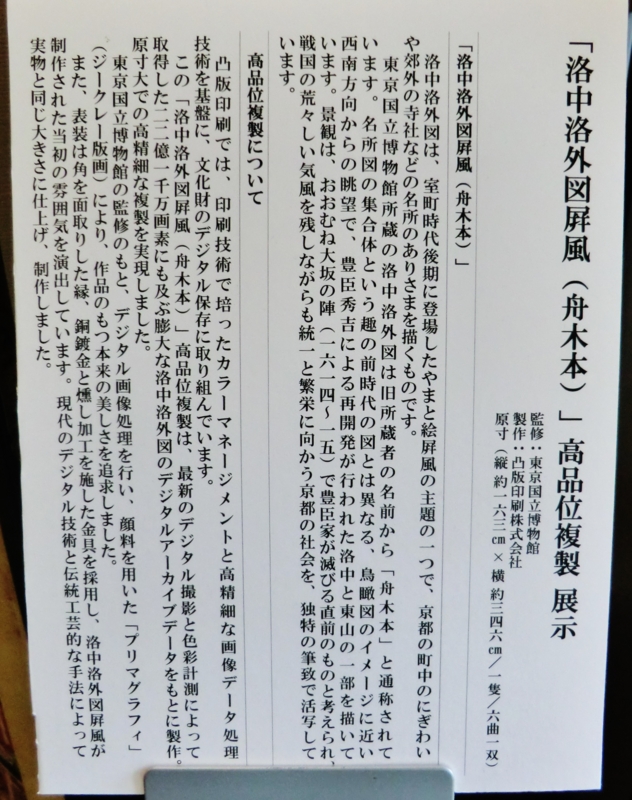 「洛中洛外図屛風（舟木本）」高品位複製 展示
監修：東京国立博物館
製作：凸版印刷株式会社
原寸（縦 約一六三㎝ × 横 約三四六㎝／一隻／六曲一双）
「洛中洛外図屛風（舟木本）」
洛中洛外図は、室町時代後期に登場したやまと絵屛風の主題の一つで、京都の町中のにぎわい
や郊外の寺社などの名所のありさまを描くものです。
東京国立博物館所蔵の洛中洛外図は旧所蔵者の名前から「舟木本」と通称されて
います。名所図の集合体という趣の前時代の図とは異なる、鳥瞰図のイメージに近い
西南方向からの眺望で、豊臣秀吉による再開発が行われた洛中と東山の一部を描いて
います。景観は、おおむね大坂の陣（一六一四～一五）で豊臣家が滅びる直前のものと考えられ、
戦国の荒々しい気風を残しながらも統一と繁栄に向かう京都の社会を、独特の筆致で活写して
います。
高品位複製について
凸版印刷では、印刷技術で培ったカラーマネージメントと高精細な画像データ処理
技術を基盤に、文化財のデジタル保存に取り組んでいます。
この「洛中洛外図屛風（舟木本）」高品位複製は、最新のデジタル撮影と色彩計測によって
取得した二二億一千万画素にも及ぶ膨大な洛中洛外図のデジタルアーカイブデータをもとに製作。
原寸大での高精細な複製を実現しました。
東京国立博物館の監修のもと、デジタル画像処理を行い、顔料を用いた「プリマグラフィ」
（ジークレー版画）により、作品のもつ本来の美しさを追求しました。
また、表装は角を面取りした縁、銅鍍金と燻し加工を施した金具を採用し、洛中洛外図屛風が
制作された当初の雰囲気を演出しています。現代のデジタル技術と伝統工芸的な手法によって
実物と同じ大きさに仕上げ、制作しました。